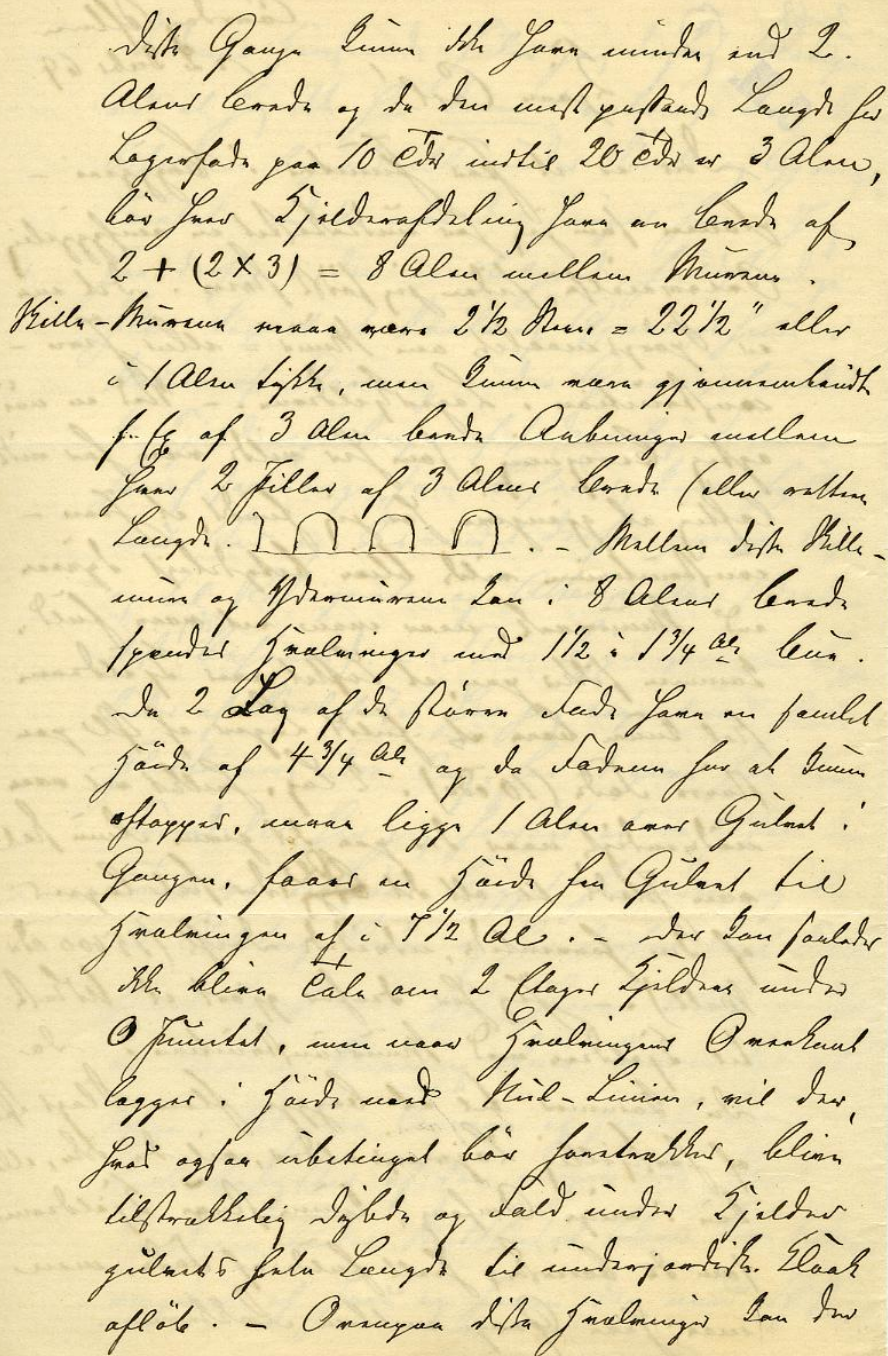 disse Gange kunne ikke have mindre end 2.
Alens Brede og da den mest passende Længde for
Lagerfade paa 10 Tdr indtil 20 Tdr er 3 Alen,
bör hver Kjelderafdeling have en Brede af
2 + (2 X 3) = 8 Alen mellem Murene.
Skille-Murene maa være 2 1/2 Steen = 22 1/2" eller
i 1 Alen tykke, men kunne være gjennembrudt
f. Ex af 3 Alen brede Aabninger mellem
hver 2 Piller af 3 Alens Brede (eller rettere
Længde. . - Mellem disse Skille-
mure og Ydermurene kan i 8 Alens Brede
spændes Hvælvinger med 1 1/2 à 1 3/4 Al. Bue.
De 2 Lag af de större Fade have en samlet
Höide af 4 3/4 Al og da Fadene for at kunne
aftappes, maa ligge 1 Alen over Gulvet i
Gangen, faaes en Höide fra Gulvet til
Hvælvingen af i 7 1/2 Al. - Der kan saaledes
ikke blive Tale om 2 Etages Kjeldere under
0 Punctet, men naar Hvælvingens Overkant
lægges i Höide med Nul-Linien, vil der,
hvad ogsaa ubetinget bör foretrækkes, blive
tilstrækkelig Dybde og Fald under Kjelder
gulvets hele Længde til underjordisk Kloak
aflöb. - Ovenpaa disse Hvælvinger kan der